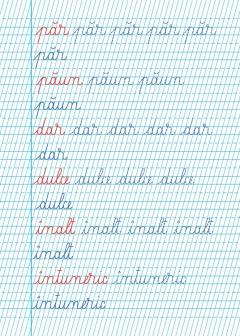 păr păr păr păr păr
păr
păun păun păun
păun
dar dar dar dar dar
dar
dulce dulce dulce dulce
dulce
înalt înalt înalt înalt
înalt
întuneric întuneric
întuneric